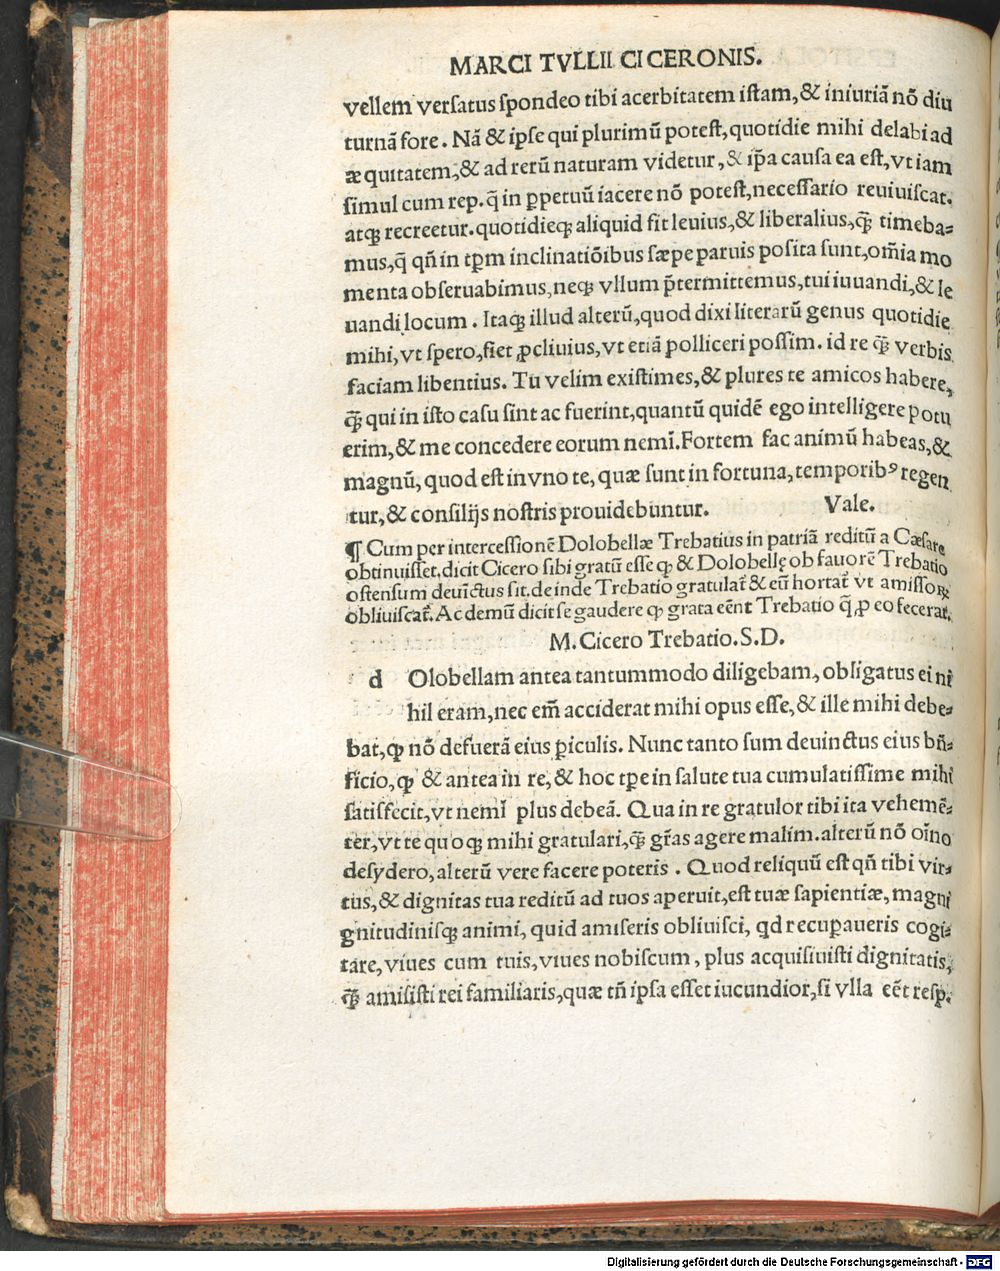 MARCI TVLLII CICERONIS.
vellem versatus spondeo tibi acerbitatem istam,& iniuriā nō diu
turnā fore. Nā & ipse qui plurimū potest,quotidie mihi delabi ad
æquitatem,& ad rerū naturam videtur,& ip̄a causa ea est,vt iam
simul cum rep. q̄ in ꝑpetuū iacere nō potest,necessario reuiuiscat.
atqꝫ recreetur.quotidieqꝫ aliquid fit leuius,& liberalius,q̄ꝫ timeba-
mus,q̄ qñ in tp̄m inclinatiōibus sæpe paruis posita sunt,om̄ia mo
menta obseruabimus,neqꝫ vllum p̄termittemus,tui iuuandi,& le
uandi locum. Itaqꝫ illud alterū,quod dixi literarū genus quotidie
mihi,vt spero,fiet ꝓcliuius,vt etiā polliceri possim. id re q̄ꝫ verbis
faciam libentius. Tu velim existimes,& plures te amicos habere,
q̄ꝫ qui in isto casu sint ac fuerint,quantū quidē ego intelligere potu
erim,& me concedere eorum nemī.Fortem fac animū habeas,&
magnū,quod est in vno te,quæ sunt in fortuna,temporibꝰ regen
tur,& consilijs nostris prouidebuntur. Vale.
¶ Cum per intercessionē Dolobellæ Trebatius in patriā reditū a Cæsare
obtinuisset,dicit Cicero sibi gratū esse ꝙ & Dolobellę ob fauorē Trebatio
ostensum deuīctus sit.deinde Trebatio gratulat̄ & eū hortat̄ vt amissoꝝ
obliuiscat̄.Ac demū dicit se gaudere ꝙ grata eēnt Trebatio q̄ ꝓ eo fecerat.
M. Cicero Trebatio.S.D.
d Olobellam antea tantummodo diligebam,obligatus ei ni
hil eram,nec em̄ acciderat mihi opus esse,& ille mihi debe-
bat,ꝙ nō defuerā eius ꝑiculis. Nunc tanto sum deuinctus eius bñ-
ficio,ꝙ & antea in re,& hoc tp̄e in salute tua cumulatissime mihi
satisfecit,vt nemī plus debeā. Qua in re gratulor tibi ita vehemē-
ter,vt te quoqꝫ mihi gratulari,q̄ꝫ gr̄as agere malim.alterū nō oīno
desydero,alterū vere facere poteris. Quod reliquū est qñ tibi vir-
tus,& dignitas tua reditū ad tuos aperuit,est tuæ sapientiæ,magni
gnitudinisqꝫ animi, quid amiseris obliuisci, qd recuꝑaueris cogi-
tare,viues cum tuis,viues nobiscum, plus acquisiuisti dignitatis,
q̄ꝫ amisisti rei familiaris,quæ tñ ipsa esset iucundior,si vlla eēt resp.
Digitalisierung gefördert durch die Deutsche Forschungsgemeinschaft - DFG